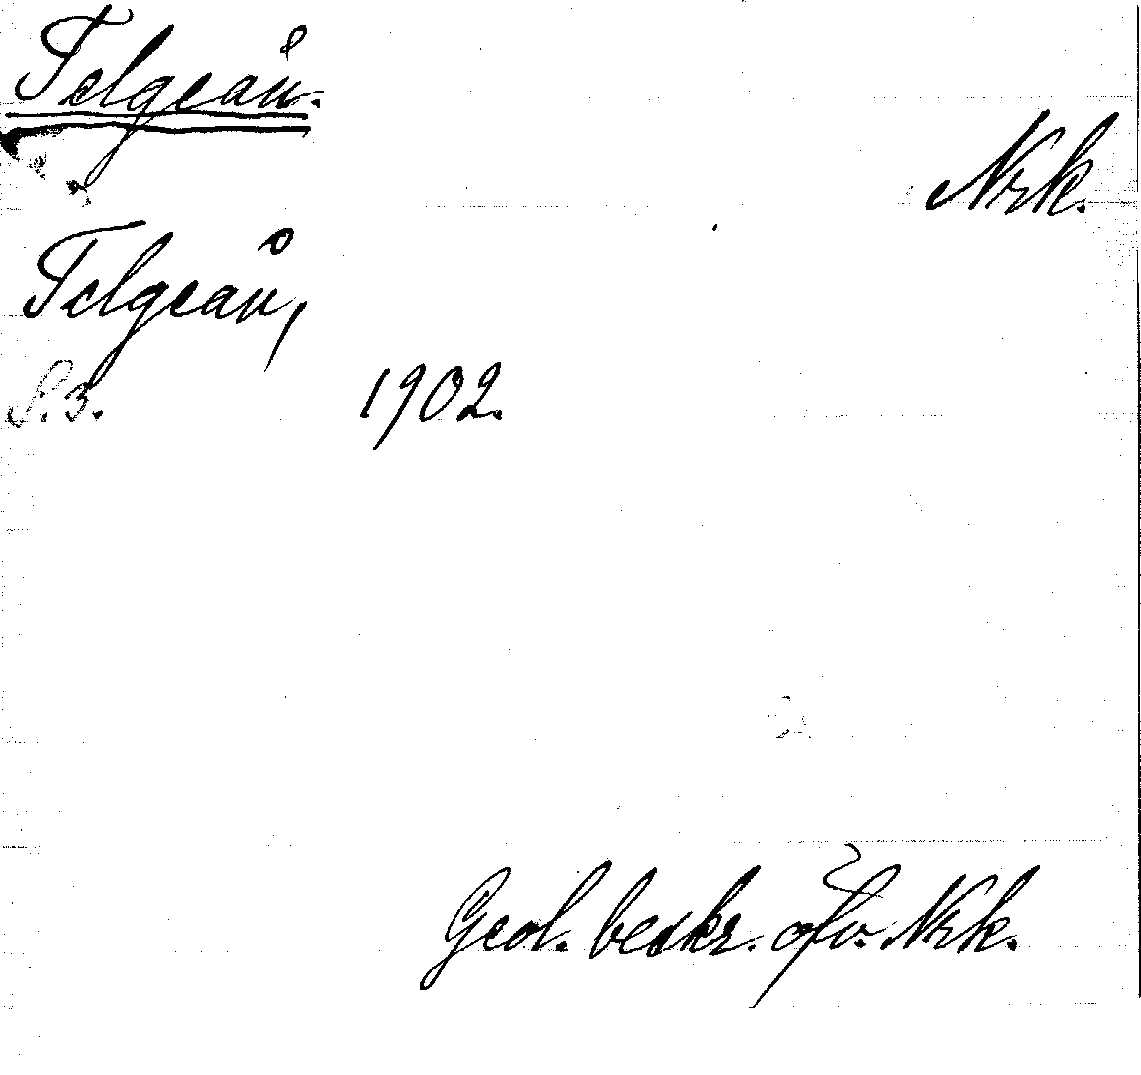 Telgeån.
Nrk.
Telgeån,
S. 3. 1902.
Geol. beskr. öfv. Nrk.